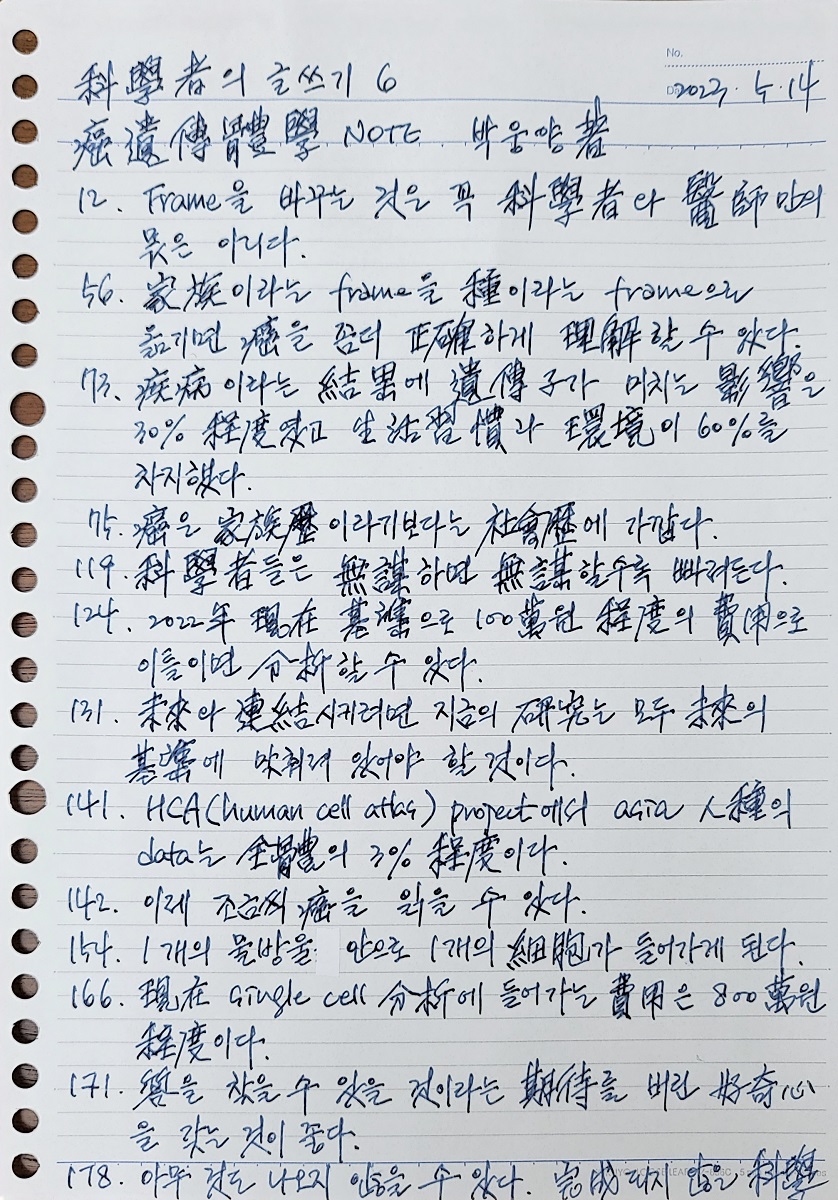 科學者의 글쓰기 6
No.
2023. 5. 14
癌遺傳體學 NOTE 박웅양著
12. Frame을 바꾸는 것은 꼭 科學者와 醫師만의
몫은 아니다.
56. 家族이라는 frame을 種이라는 frame으로
옮기면 癌을 좀더 正確하게 理解할 수 있다.
73. 疾病이라는 結果에 遺傳子가 미치는 影響은
30% 程度였고 生活習慣과 環境이 60%를
차지했다.
75. 癌은 家族歷이라기보다는 社會歷에 가깝다.
119. 科學者들은 無謀하면 無謀할수록 빠져든다.
124. 2022年 現在 基準으로 100萬원 程度의 費用으로
이틀이면 分析할 수 있다.
131. 未來와 連結시키려면 지금의 硏究는 모두 未來의
基準에 맞춰려 있어야 할 것이다.
141. HCA(human cell atlas) project에서 asia 人種의
data는 全體의 3% 程度이다.
142. 이제 조금씩 癌을 읽을 수 있다.
154. 1개의 물방울 안으로 1개의 細胞가 들어가게 된다.
166. 現在 single cell 分析에 들어가는 費用은 800萬원
程度이다.
171. 을 찾을 수 있을 것이라는 期待를 버린 好奇心
을 갖는 것이 좋다.
178. 아무 것도 나오지 않을 수 있다. 完成되지 않은 科學